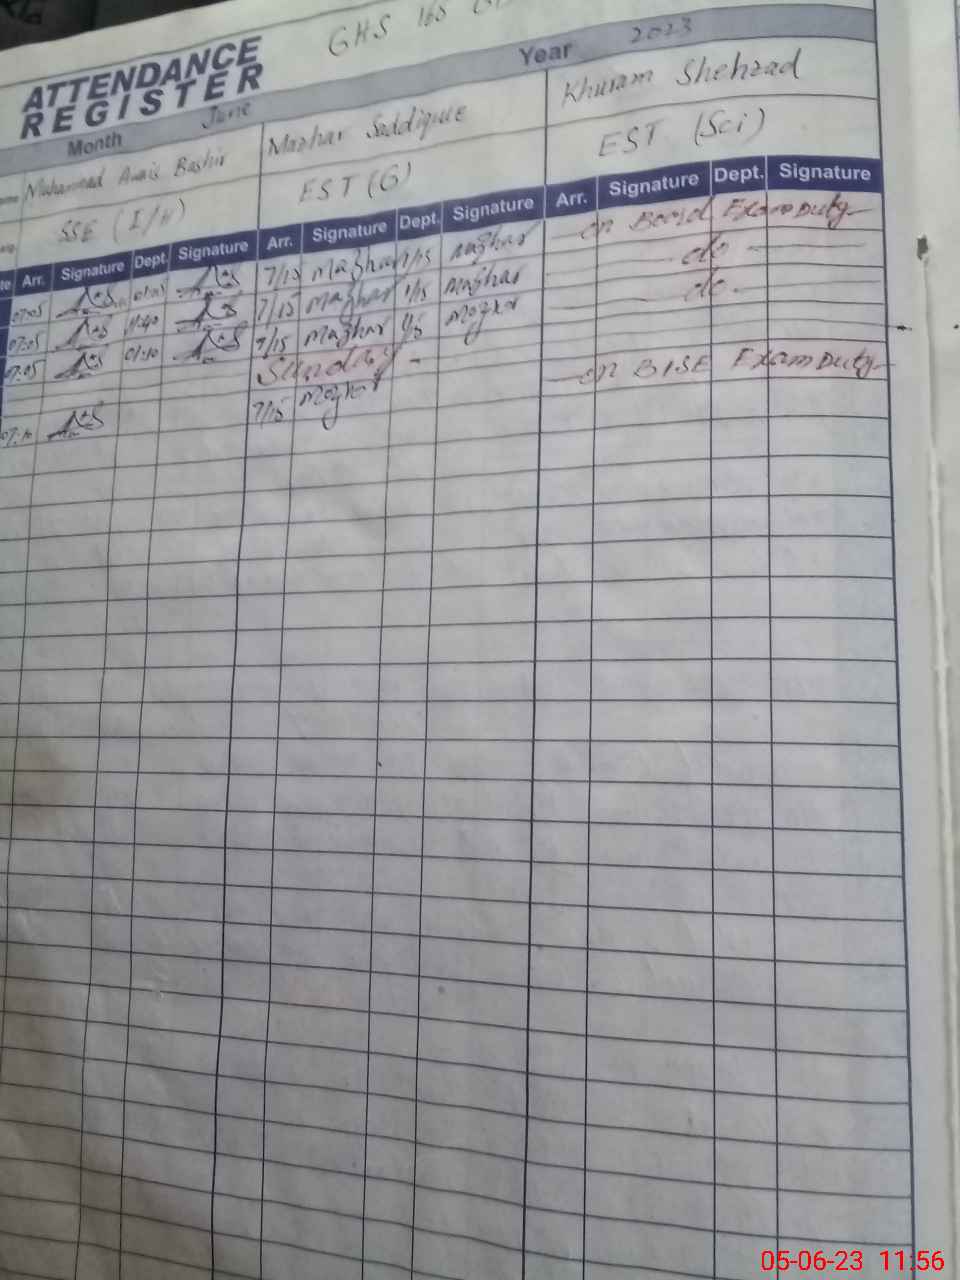 GHS 165
ATTENDANCE
REGISTER
Month June Year 2023
Muhammad Anais Bashir Mazhar Saddique Khuram Shehzad
SSE (I/H) EST (G) EST (Sci)
Arr. Signature Dept. Signature Arr. Signature Dept. Signature Arr. Signature Dept. Signature
07:05 7/15 Mazhar 1/15 Mazhar on Board Exam Duty
07:05 11:40 7/15 Mazhar 1/15 Mazhar do
7:05 01:10 7/15 Mazhar Mazhar do
Sunday
07:10 7/15 Mazhar on BISE Exam Duty
05-06-23 11:56